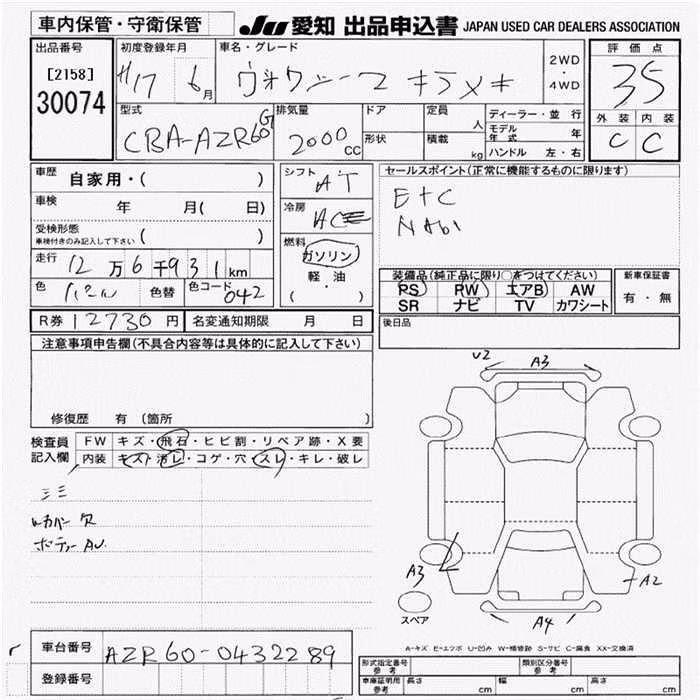 車内保管・守衛保管
JU 愛知 出品申込書 JAPAN USED CAR DEALERS ASSOCIATION
出品番号
[2158]
30074
初度登録年月
H17 6月
車名・グレード
ヴォクシーZ キラメキ
2WD
・
4WD
評価点
35
外装 内装
C C
型式
CBA-AZR60G
排気量
2000 CC
ドア
形状
定員 人
積載 kg
ディーラー・並行
モデル年式 年
ハンドル 左・右
車歴 自家用・( )
車検 年 月( 日)
受検形態
車検付きのみ記入して下さい ( )
走行 12万6千931km
色 パール 色替 色コード 042
シフト AT
冷房 AC
燃料
ガソリン
軽・油
( )
セールスポイント(正常に機能するものに限ります)
ETC
NAVI
装備品(純正品に限り○をつけてください)
PS PW エアB AW
SR ナビ TV カワシート
新車保証書
有・無
R券 12730円 名変通知期限 月 日
後日品
注意事項申告欄(不具合内容等は具体的に記入して下さい)
修復歴 有 (箇所 )
検査員
記入欄
FW キズ・飛石・ヒビ割・リペア跡・X要
内装 キズ・汚レ・コゲ・穴・スレ・キレ・破レ
ミミ
カバー欠
ボディーAU.
U2 A3
A3
A2
A4
スペア
A-キズ E-エクボ U-凹み W-補修跡 S-サビ C-腐食 XX-交換済
車台番号 AZR60-0432289
登録番号
形式指定番号
参考
類別区分番号
参考
車庫証明用
参考
長さ cm 幅 cm 高さ cm